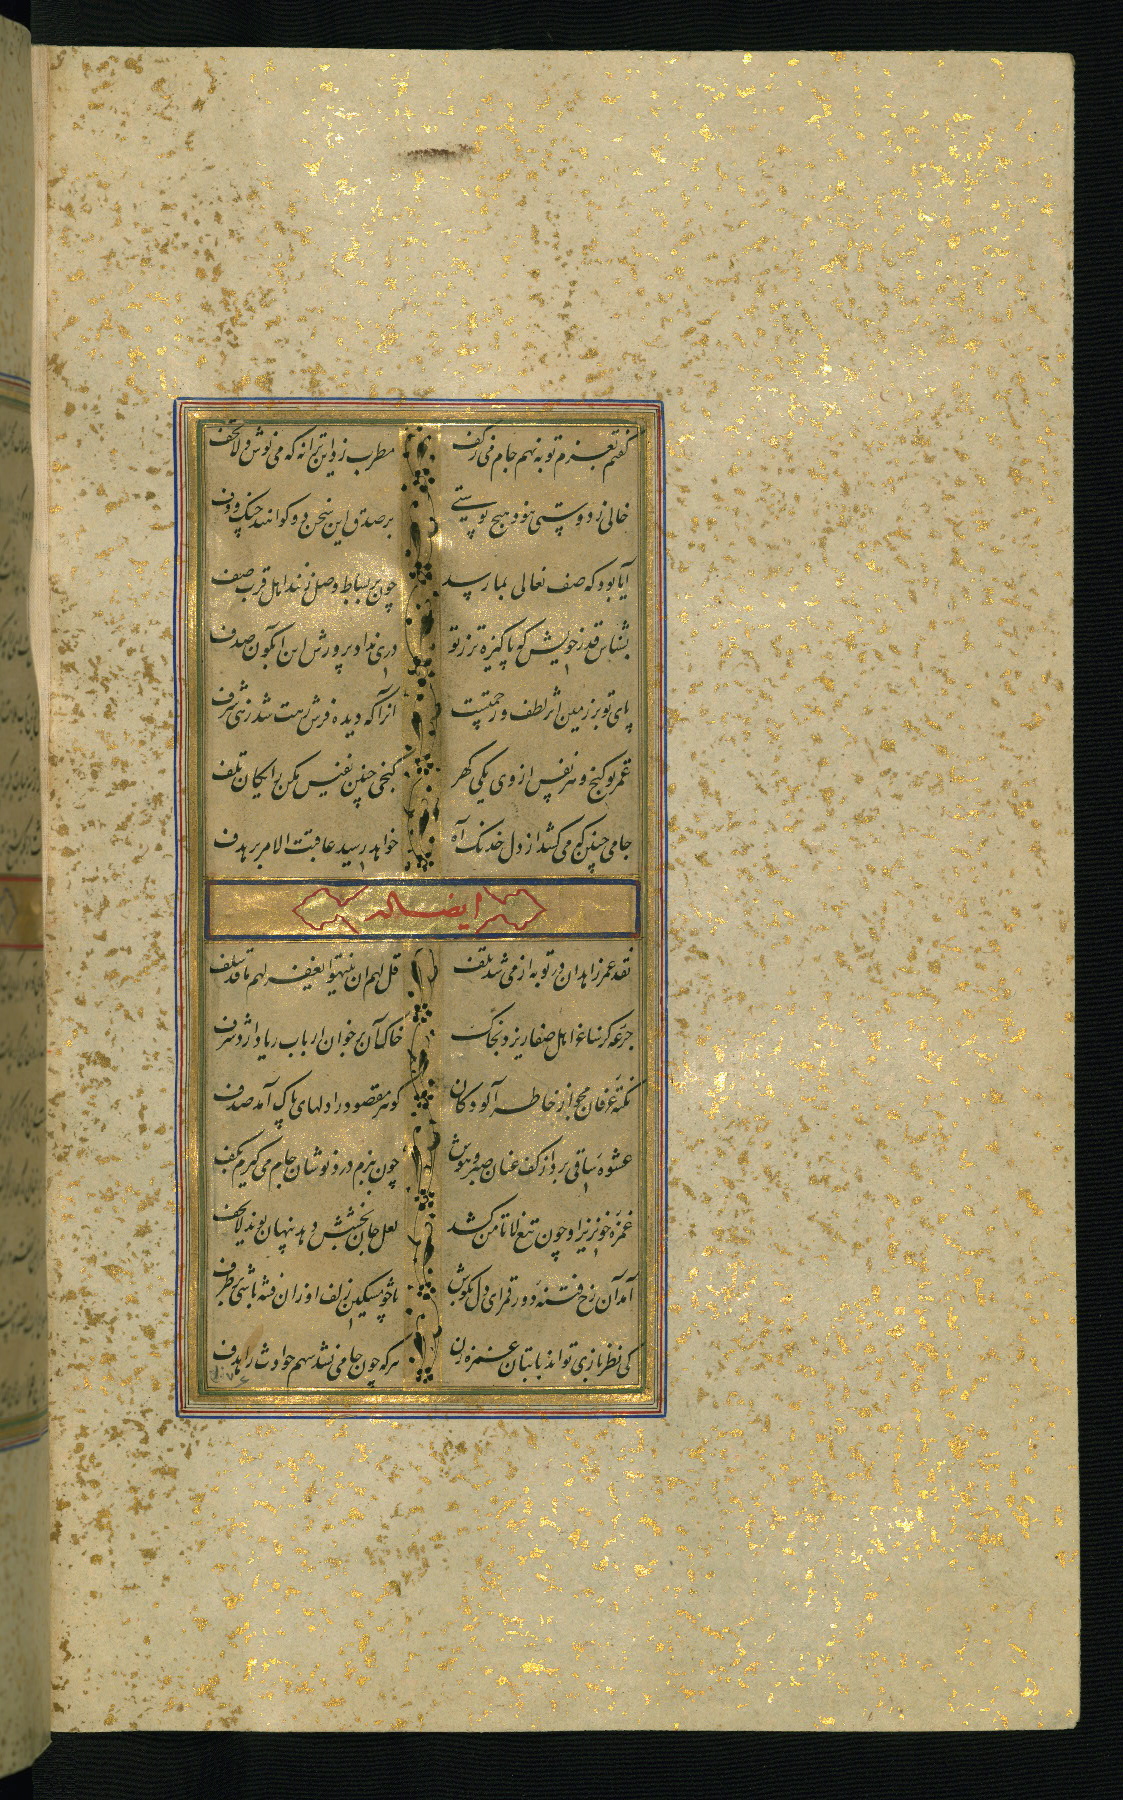 گفتم بعزم توبه نهم جام می ز کف مطرب زد این ترانه که می نوش و لا تخف
خالی ز دوستی نبود هیچ پوستی بر صدق این سخن دو گوا نند چنگ و دف
آیا بود که صف نعالی بما رسد چون بر بساط وصل زنند اهل قرب صف
بشناس قدر خویش که پاکیزه تر ز تو دری نداد پرورش این آبگون صدف
پای تو بر زمین اثر لطف و رحمتیست انرا که دیده فرش رهت شد زهی شرف
عمر تو گنج و هر نفس از وی یکی گهر گنجی چنین نفیس مکن رایگان تلف
جامی چنین که می کشد از دل خدنگ آه خواهد رسید عاقبت الامر بر هدف
ایضا له
نقد عمر زاهدان در توبه از می شد تلف قل لهم ان ینتهوا یغفر لهم ما قد سلف
جرعه کز ساغر اهل صفا ریزد بخاک خاک آن بر خوان ارباب ریا دارد شرف
نکته عرفان مجو از خاطر آلودگان گوهر مقصود را دلهای پاک آمد صدف
عشوه ساقی برد از کف عنان صبر و هوش چون ببزم درد نوشان جام می گیرم بکف
غمزه خونریز او چون تیغ لا تأمن کشد لعل جان بخشش دهد پنهان نوید لا تخف
آمد آن رخ فتنه دور قمر ای دل بکوش تا چو مسکین زلف او زان فتنه باشی بر طرف
کی نظر بازی تواند با بتان غمزه زن هر که چون جامی نشد سهم حوادث را هدف